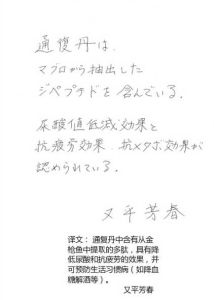 通復丹は、
マグロから抽出した
ジペプチドを含んでいる。
尿酸値低減効果と
抗疲労効果、抗メタボ効果が
認められている。
又平芳春
译文：通复丹中含有从金
枪鱼中提取的多肽，具有降
低尿酸和抗疲劳的效果，并
可预防生活习惯病（如降血
糖解酒等）。
又平芳春